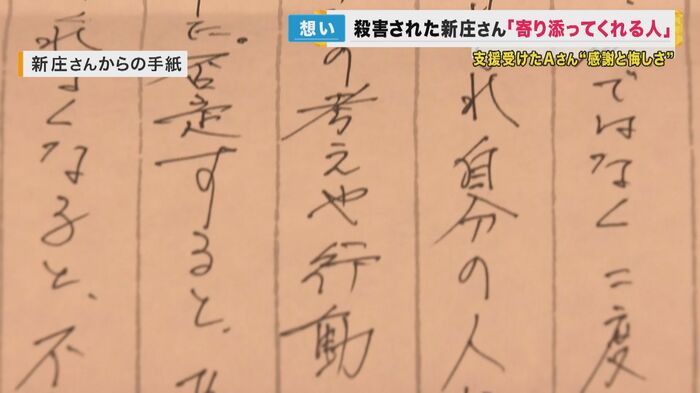 想い
殺害された新庄さん「寄り添ってくれる人」
支援受けたAさん“感謝と悔しさ”
新庄さんからの手紙
ではなく二度
れ自分の人
の考えや行動
て、否定すると、
なくなると、不